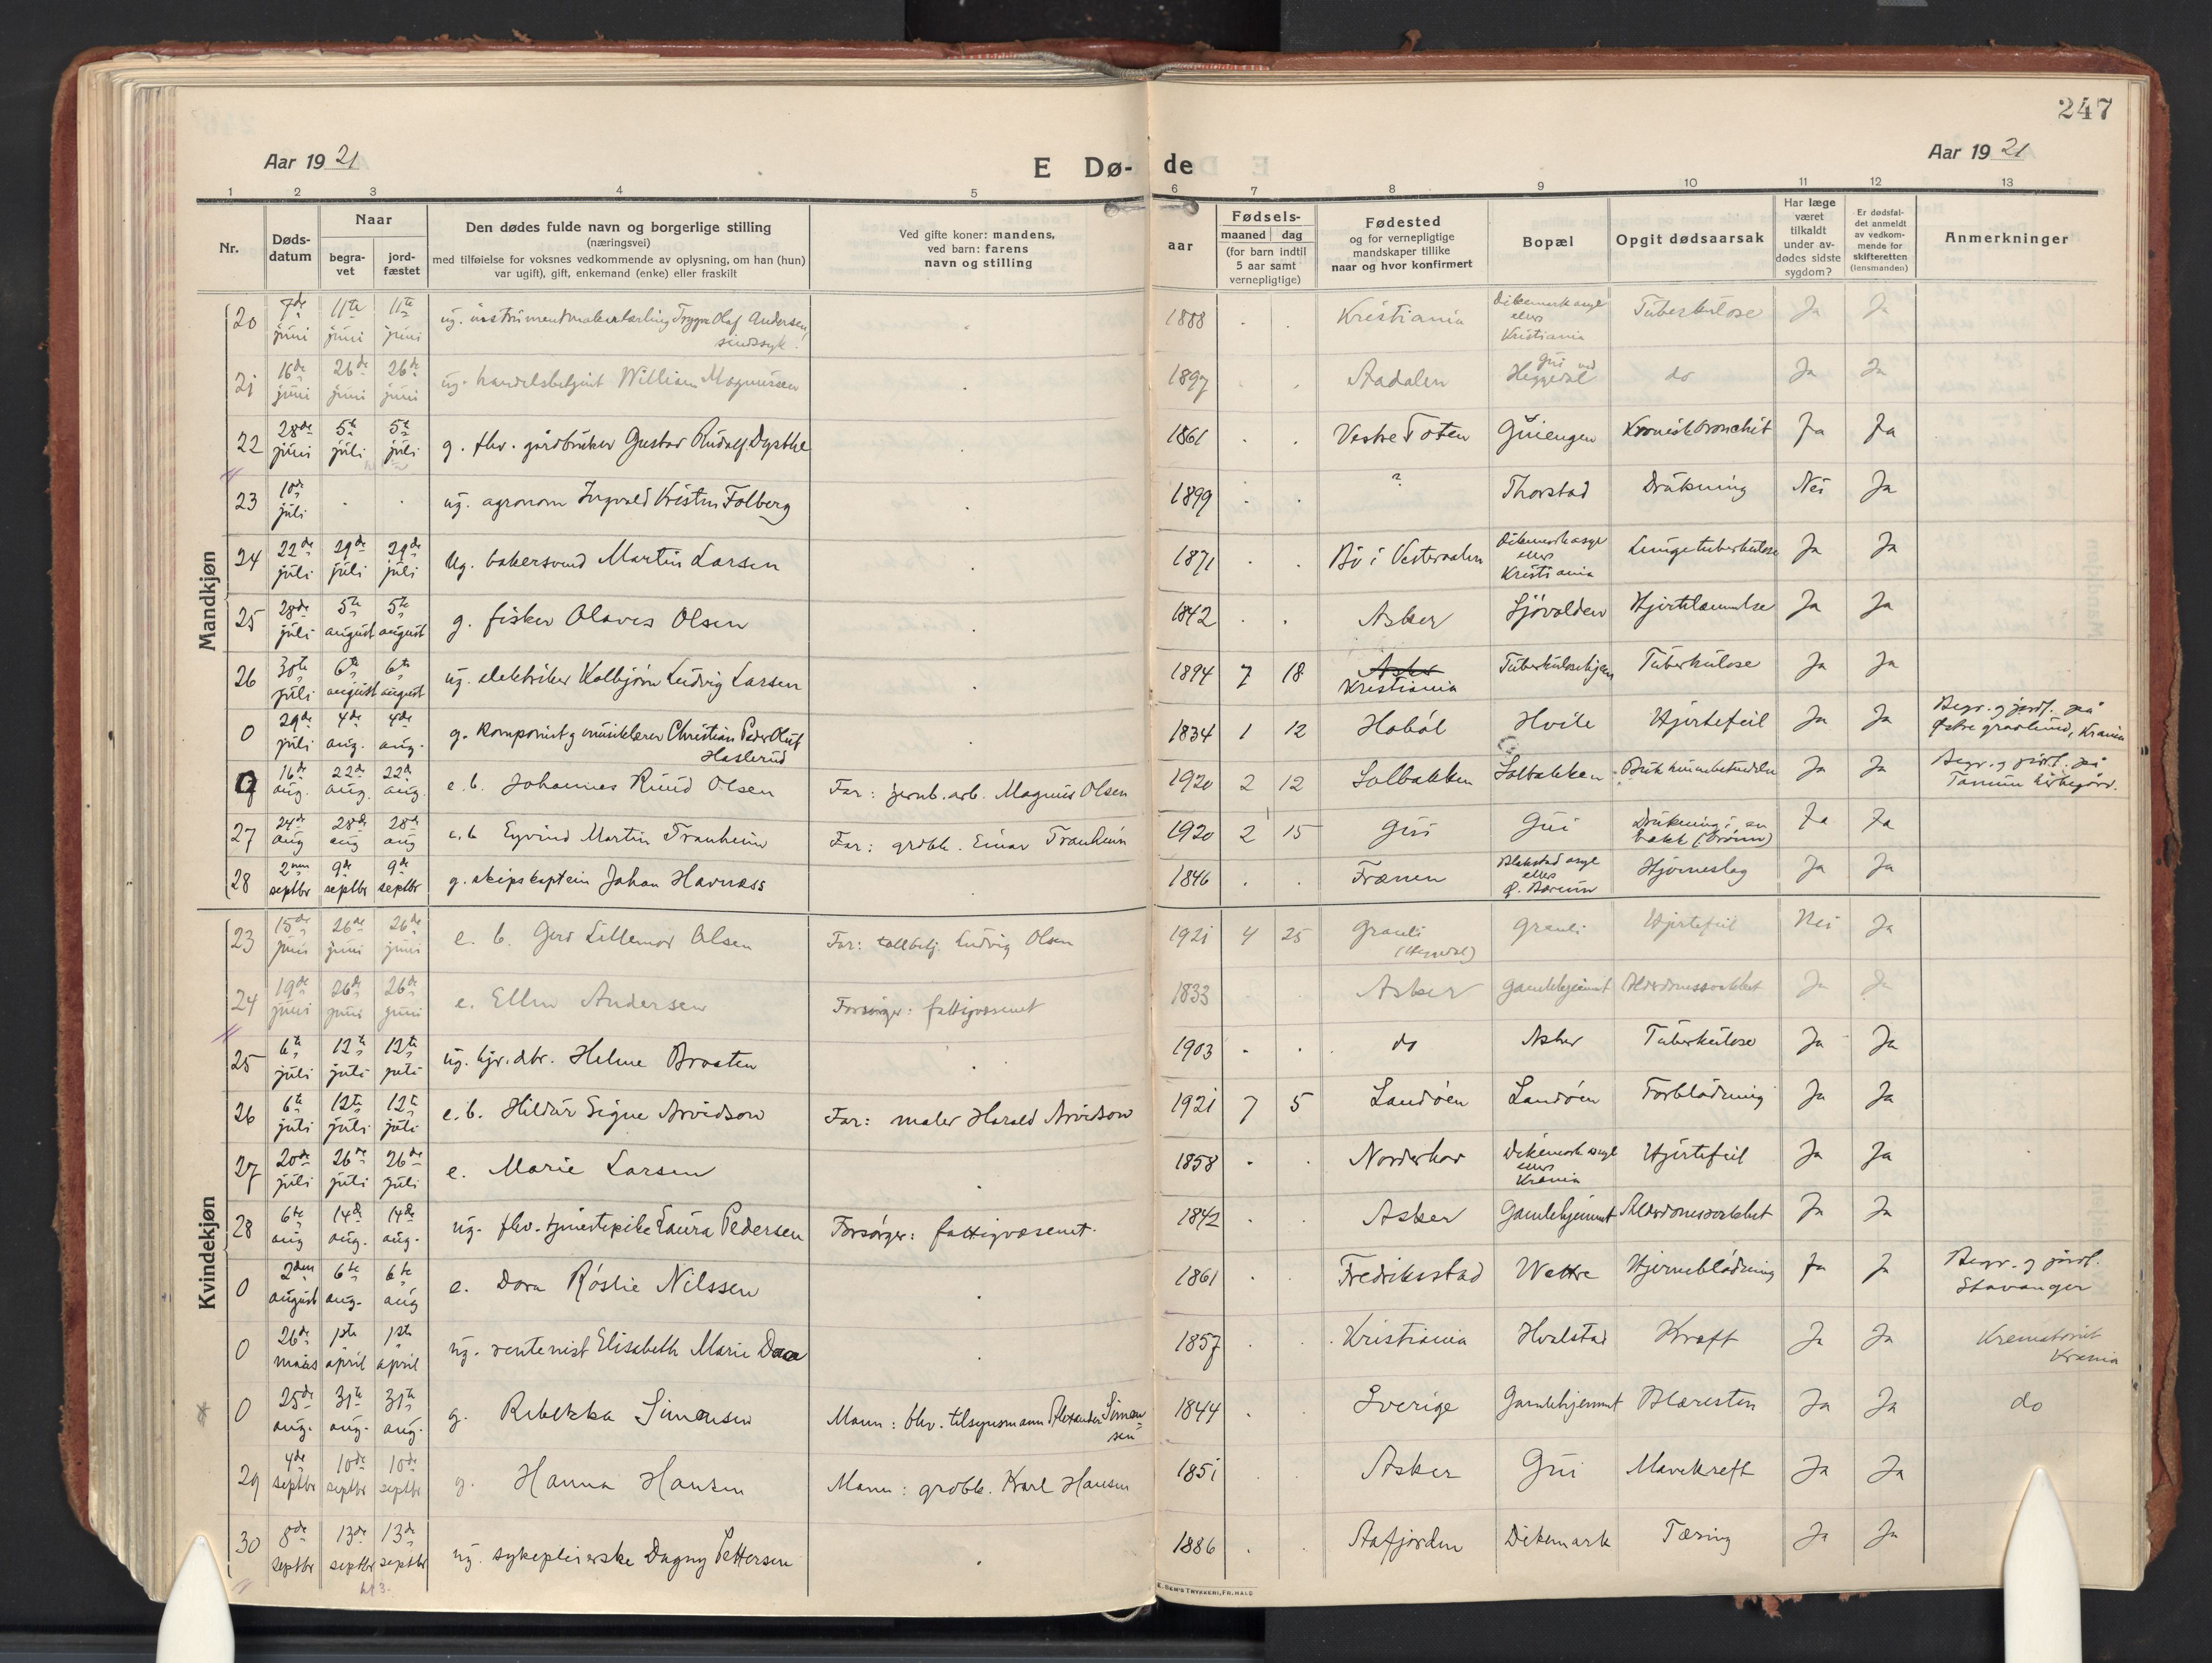 247
Aar 1921
E Dø-
de
Aar 1921
1 2 3 4 5 6 7 8 9 10 11 12 13
Nr.
Døds-
datum
Naar
begra-
vet
jord-
fæstet
Den dødes fulde navn og borgerlige stilling
(næringsvei)
med tilføielse for voksnes vedkommende av oplysning, om han (hun)
var ugift), gift, enkemand (enke) eller fraskilt
Ved gifte koner: mandens,
ved barn: farens
navn og stilling
aar
Fødsels-
maaned dag
(for barn indtil
5 aar samt
vernepligtige)
Fødested
og for vernepligtige
mandskaper tillike
naar og hvor konfirmert
Bopæl
Opgit dødsaarsak
Har læge
været
tilkaldt
under av-
dødes sidste
sygdom?
Er dødsfal-
det anmeldt
av vedkom-
mende for
skifteretten
(lensmanden)
Anmerkninger
Mandkjøn
20 7de juni 11te juni 11te juni ug. instrumentmakerlærling Trygve Olaf Andersen, sindssyk. 1888 . . Kristiania Dikemark asyl ellers Kristiania Tuberkulose Ja Ja
21 16de juni 26de juni 26de juni ug. handelsbetjent William Magnussen . 1897 . . Aadalen Gui ved Heggedal do Ja Ja
22 28de juni 5te juli 5te juli g. fhv. gårdbruker Gustav Rudolf Dysthe 1861 . . Vestre Toten Guiengen Kronisk bronchit Ja Ja
23 10de juli . . ug. agronom Ingvald Kristen Folberg . 1899 . . ? Thorstad Drukning Nei Ja
24 22de juli 29de juli 29de juli Ug. bakersvend Martin Larsen . 1871 . . Bø i Vesteraalen Dikemark asyl ellers Kristiania Lungetuberkulose Ja Ja
25 28de juli 5te august 5te august g. fisker Olaves Olsen . 1842 . . Asker Sjøvolden Hjertelammelse Ja Ja
26 30te juli 6te august 6te august ug. elektriker Kolbjørn Ludvig Larsen . 1894 7 18 Asker Kristiania Tuberkulosehjem Tuberkulose Ja Ja
0 29de juli 4de aug. 4de aug. g. Komponist g musiklærer Christian Peder Oluf Haslerud . 1834 1 12 Hobøl Hvile Hjertefeil Ja Ja Begr. g jordf. på Østre gravlund, Krania
0 16de aug. 22de aug. 22de aug. e. b. Johannes Ruud Olsen Far: jernb. arb. Magnus Olsen 1920 2 12 Solbakken Solbakken Ja Ja Begr. g jordf. på Tanum kirkegård.
27 24de aug 28de aug 28de aug e. b. Eyvind Martin Tranheim Far: grdbr. Einar Tranheim 1920 2 15 Gui Gui Drukning i en bekk (brønn) Ja Ja
28 2nen septbr 9de septbr 9de septbr g. skipskaptein Johan Havnæss . 1846 . . Frænen Blakstad asyl ellers Ø. Bærum Hjerneslag Ja Ja
Kvindekjøn
23 15de juni 26de juni 26de juni e. b. Gerd Lillemor Olsen Far: tollbetj. Ludvig Olsen 1921 4 25 Granli (Heggedal) Granli Hjertefeil Nei Ja
24 19de juni 26de juni 26de juni e. Ellen Andersen Forsørger: fattigvæsenet 1833 . . Asker Gamlehjemmet Alderdomssvakhet Ja Ja
25 6te juli 12te juli 12te juli ug. Helme Braaten . 1903 . . do Asker Tuberkulose Ja Ja
26 6te juli 12te juli 12te juli e. b. Hildur Signe Arvidson Far: maler Harald Arvidson 1921 7 5 Landøen Landøen Forblødning Ja Ja
27 20de juli 26de juli 26de juli e. Marie Larsen . 1858 . . Norderhov Dikemark asyl ellers Krania Hjertefeil Ja Ja
28 6te aug 14de aug. 14de aug. ug. fhv. tjenestepike Laura Pedersen Forsørger: fattigvæsenet. 1842 . . Asker Gamlehjemmet Alderdomssvakhet Ja Ja
0 2den august 6te aug. 6te aug e. Dora Røslie Nilssen . 1861 . . Fredriksstad Wettre Hjerneblødning Ja Ja Begr. g jordf. Stavanger
0 26de mars 1ste april 1ste april ug. rentenist Elisabeth Marie Daa . 1857 . . Kristiania Hvalstad Kræft Ja Ja Krematoriet Krania
0 25de aug. 31te aug. 31te aug. g. Rebekka Simensen Mann: fhv. tilsynsmann Alexander Simensen 1844 . . Sverige Gamlehjemmet Blæresten Ja Ja do
29 4de septbr 10de septbr 10de septbr g. Hanna Hansen Mann: grdbr. Karl Hansen 1851 . . Asker Gui Mavekreft Ja Ja
30 8de septbr 13de septbr 13de septbr ug. sykepleierske Dagny Pettersen . 1886 . . Aafjorden Dikemark Tæring Ja Ja
E. SEM'S TRYKKERI, FR.HALD